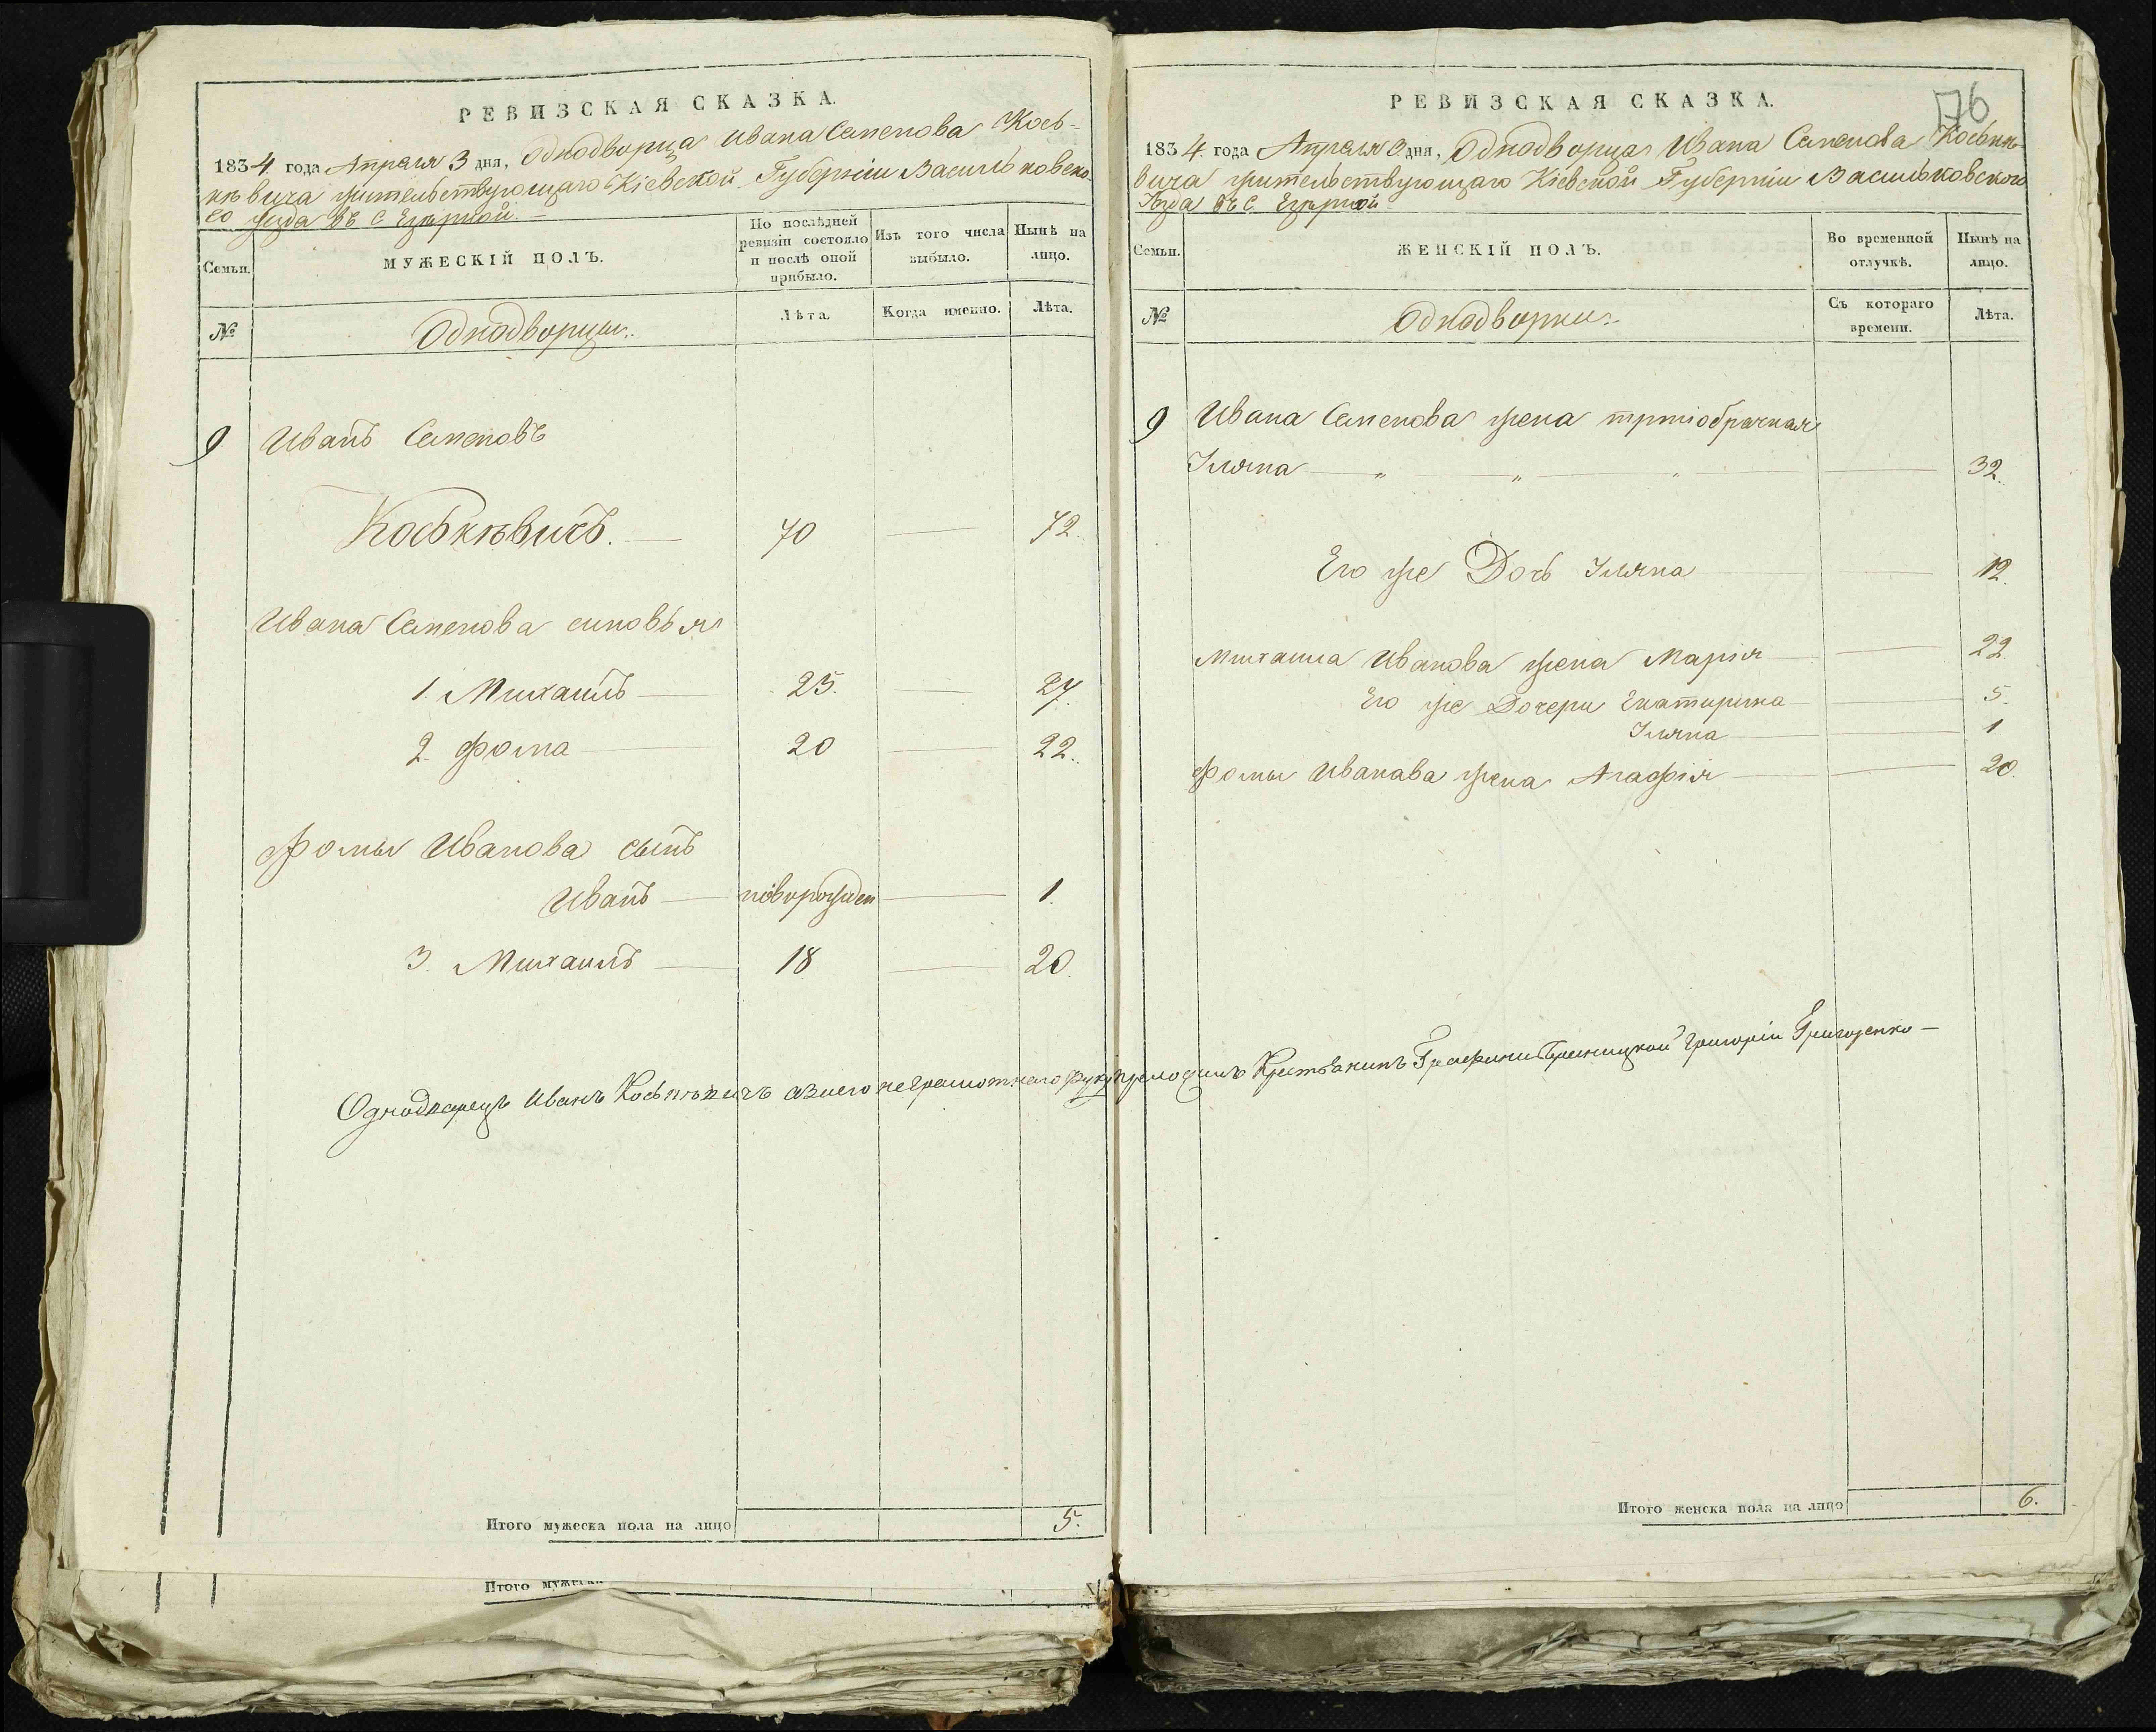 РЕВИЗСКАЯ СКАЗКА.
1834 года Апреля 3 дня, Однодворца Ивана Семенова Косъ-
кѣвича жительствующаго Кіевской Губерніи Васильковска-
го уезда въ с.
Семьи.
МУЖЕСКІЙ ПОЛЪ.
По послѣдней ревизіи состояло и послѣ оной прибыло.
Изъ того числа выбыло.
Нынѣ на лицо.
№
Однодворцы.
Лѣта.
Когда именно.
Лѣта.
9 Иванъ Семеновъ
Коськѣвичъ. — 70 — 72.
Ивана Семенова синовья
1. Михаилъ — 25. — 27.
2. Фома — 20 — 22.
Фомы Иванова сынъ
Иванъ — новорожден — 1.
3. Михаилъ — 18 — 20.
Итого мужеска пола на лицо 5.
Итого мужеска
РЕВИЗСКАЯ СКАЗКА.
76
1834 года Апреля 3 дня, Однодворца Ивана Семенова Коськѣ
вича жительствующаго Кіевской Губерніи Васильковского
уѣзда въ с.
Семьи.
ЖЕНСКІЙ ПОЛЪ.
Во временной отлучкѣ.
Нынѣ на лицо.
№
Однодворки.
Съ котораго времени.
Лѣта.
9 Ивана Семенова жена третіобрачная
Уляна — „ — „ — 32.
Его же Дочь Уляна — 12.
Михаила Иванова жена Марія — 22.
Его же Дочери Екатирина — 5.
Уляна — 1
Фомы Иванава жена Агафія — 20.
Однодворецъ Иванъ Коськѣвичъ а за него неграмотнаго руку приложилъ Крестьянинъ Графини Браницкой Григорій Григоренко —
Итого женска пола на лицо 6.